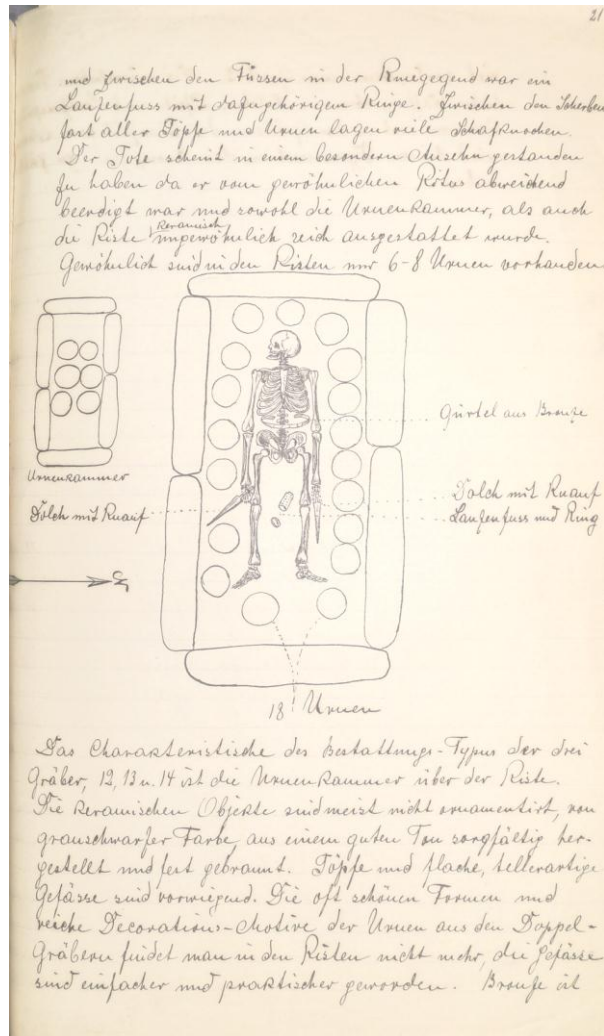 21
und zwischen den Füssen in der Kniegegend war ein
Lanzenfuss mit dazugehörigem Ringe. Zwischen den Scherben
fast aller Töpfe und Urnen lagen viele Schafknochen.
Der Tote scheint in einem besondern Ansehn gestanden
zu haben da er vom gewöhnlichen Ritus abweichend
beerdigt war und sowohl die Urnenkammer, als auch
die Kiste keramisch ungewöhnlich reich ausgestattet wurde.
Gewöhnlich sind in den Kisten nur 6-8 Urnen vorhanden
Gürtel aus Bronze
Urnenkammer
Dolch mit Knauf
Dolch mit Knauf
Lanzenfuss und Ring
18 Urnen
Das Charakteristische des Bestattungs-Typus der drei
Gräber, 12, 13 u. 14 ist die Urnenkammer über der Kiste.
Die keramischen Objekte sind meist nicht ornamentirt, von
grauschwarzer Farbe, aus einem guten Ton sorgfältig her-
gestellt und fest gebrannt. Töpfe und flache, tellerartige
Gefässe sind vorwiegend. Die oft schönen Formen und
reiche Decorations-Motive der Urnen aus den Doppel-
Gräbern findet man in den Kisten nicht mehr, die Gefässe
sind einfacher und praktischer geworden. Bronze ist